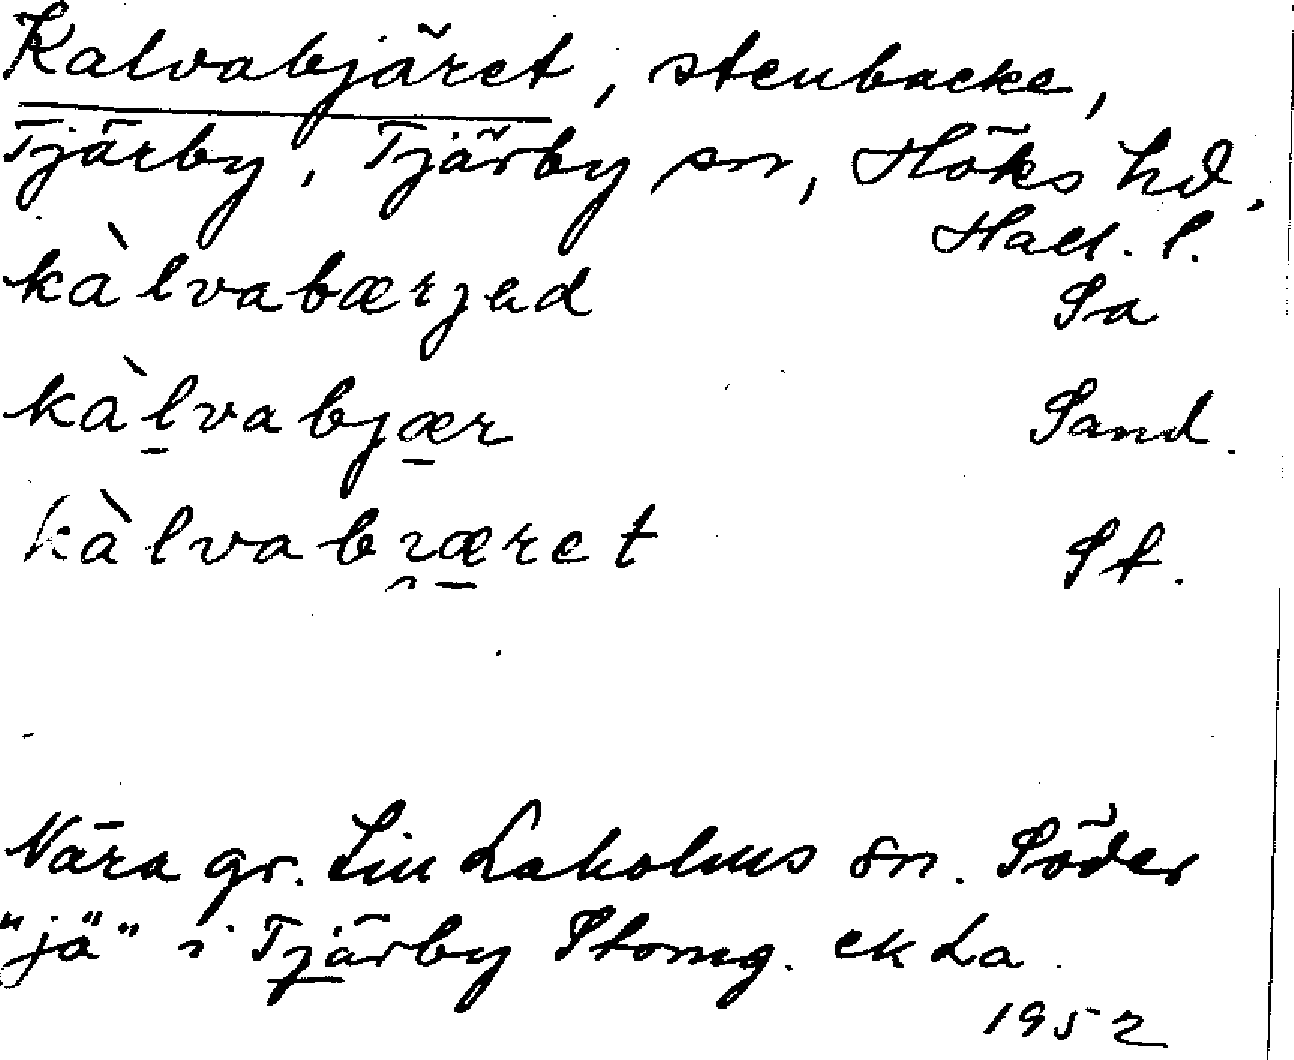 Kalvabjäret, stenbacke,
Tjärby, Tjärby sn, Höks hd.
Hall. l.
kàlvabærjed Sa
kàlvabjær Sand.
kàlvabi̯æret St.
Nära gr. t. Laholms sn. Söder
"jä" i Tjärby Stomg. ek La.
1952